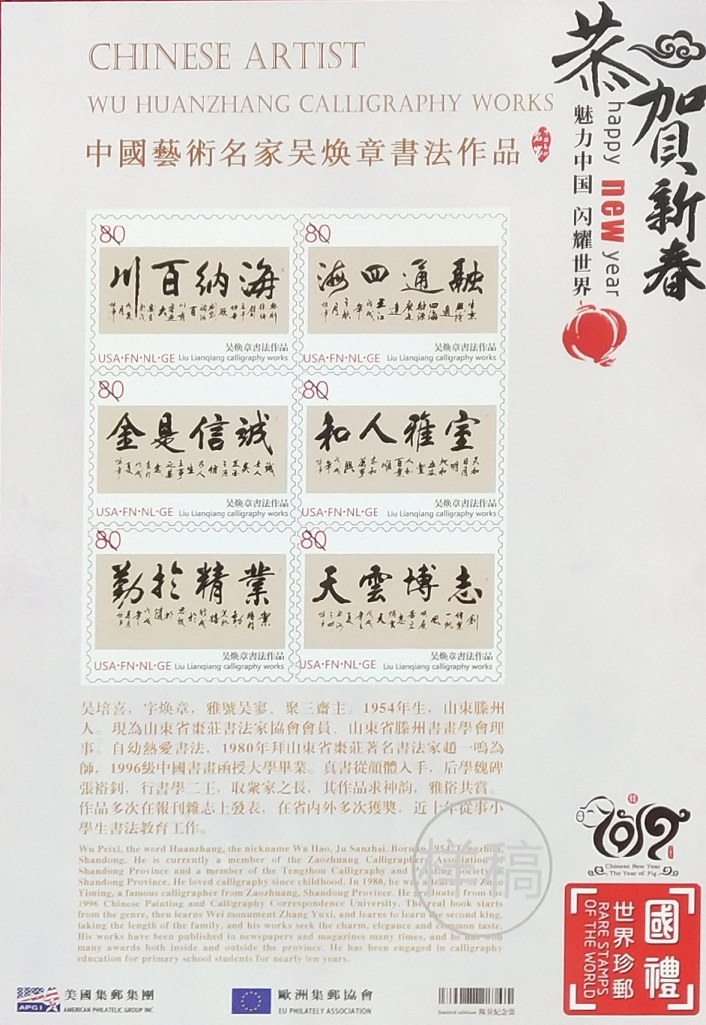 CHINESE ARTIST
WU HUANZHANG CALLIGRAPHY WORKS
中國藝術名家吴焕章書法作品
恭賀新春
happy new year
魅力中国 闪耀世界
80
海納百川
吴焕章書法作品
USA·FN·NL·GE Liu Lianqiang calligraphy works
80
融通四海
吴焕章書法作品
USA·FN·NL·GE Liu Lianqiang calligraphy works
80
誠信是金
吴焕章書法作品
USA·FN·NL·GE Liu Lianqiang calligraphy works
80
室雅人和
吴焕章書法作品
USA·FN·NL·GE Liu Lianqiang calligraphy works
80
業精於勤
吴焕章書法作品
USA·FN·NL·GE Liu Lianqiang calligraphy works
80
志博雲天
吴焕章書法作品
USA·FN·NL·GE Liu Lianqiang calligraphy works
吴培喜，字焕章，雅號吴寥、聚三齋主。1954年生，山東滕州
人。現為山東省棗莊書法家協會會員、山東省滕州書畫學會理
事。自幼熱愛書法，1980年拜山東省棗莊著名書法家趙一鳴為
師，1996級中國書畫函授大學畢業。真書從顔體入手，后學魏碑
張裕釗，行書學二王，取衆家之長，其作品求神韵，雅俗共賞。
作品多次在報刊雜志上發表，在省内外多次獲獎，近十年從事小
學生書法教育工作。
Wu Peixi, the word Huanzhang, the nickname Wu Hao, Ju Sanzhai. Born 1954, Tengzhou,
Shandong. He is currently a member of the Zaozhuang Calligraphy Association,
Shandong Province and a member of the Tengzhou Calligraphy and Painting Society,
Shandong Province. He loved calligraphy since childhood. In 1980, he Zhao
Yiming, a famous calligrapher from Zaozhuang, Shandong Province. He graduated from the
1996 Chinese Painting and Calligraphy Correspondence University. The real book starts
from the genre, then learns Wei monument Zhang Yuxi, and learns to learn the second king,
taking the length of the family, and his works seek the charm, elegance and common taste.
His works have been published in newspapers and magazines many times, and he has won
many awards both inside and outside the province. He has been engaged in calligraphy
education for primary school students for nearly ten years.
样稿
2019
Chinese New Year
The Year of Pig
國禮
世界珍郵
RARE STAMPS
OF THE WORLD
APGI
美國集郵集團
AMERICAN PHILATELIC GROUP INC
歐洲集郵協會
EU PHILATELY ASSOCIATION
limited edition 限量紀念張